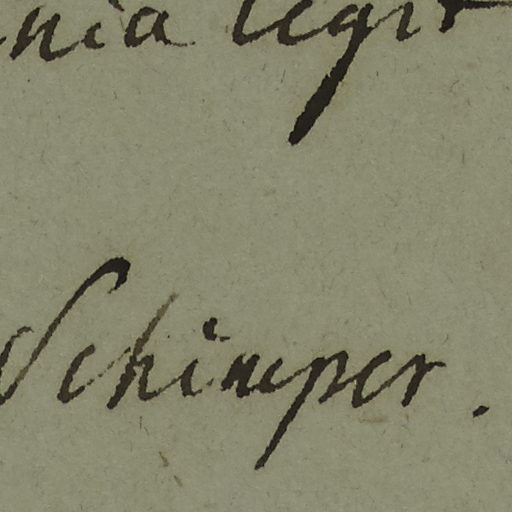 nia legit
Schimper.